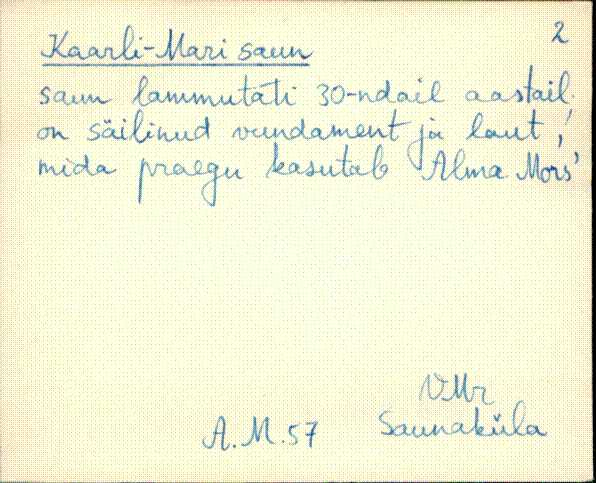 2
Kaarli-Mari saun
saun lammutati 30-ndail aastail,
on säilinud vundament ja laut,
mida praegu kasutab Alma Mors'
VMr
A.M.57 Saunaküla